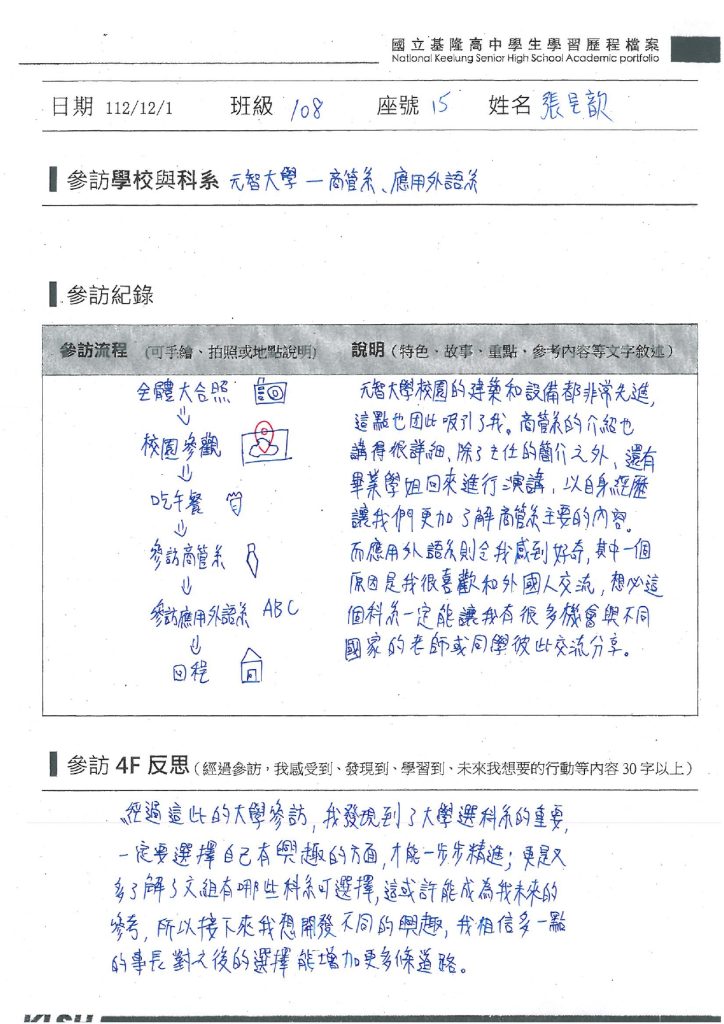 國立基隆高中學生學習歷程檔案
National Keelung Senior High School Academic portfolio
日期 112/12/1 班級 108 座號 15 姓名 張呈歆
參訪學校與科系 元智大學 — 商管系、應用外語系
參訪紀錄
參訪流程 (可手繪、拍照或地點說明)
全體大合照
↓
校園參觀
↓
吃午餐
↓
參訪商管系
↓
參訪應用外語系 ABC
↓
回程
說明 (特色、故事、重點、參考內容等文字敘述)
元智大學校園的建築和設備都非常先進,
這點也因此吸引了我。商管系的介紹也
講得很詳細,除了主任的簡介之外,還有
畢業學姐回來進行演講,以自身經歷
讓我們更加了解商管系主要的內容。
而應用外語系則令我感到好奇,其中一個
原因是我很喜歡和外國人交流,想必這
個科系一定能讓我有很多機會與不同
國家的老師或同學彼此交流分享。
參訪 4F 反思 (經過參訪,我感受到、發現到、學習到、未來我想要的行動等內容 30 字以上)
經過這此的大學參訪,我發現到了大學選科系的重要,
一定要選擇自己有興趣的方面,才能一步步精進;更是又
多了解了文組有哪些科系可選擇,這或許能成為我未來的
參考,所以接下來我想開發不同的興趣,我相信多一點
的專長對之後的選擇能增加更多條道路。
KLSH